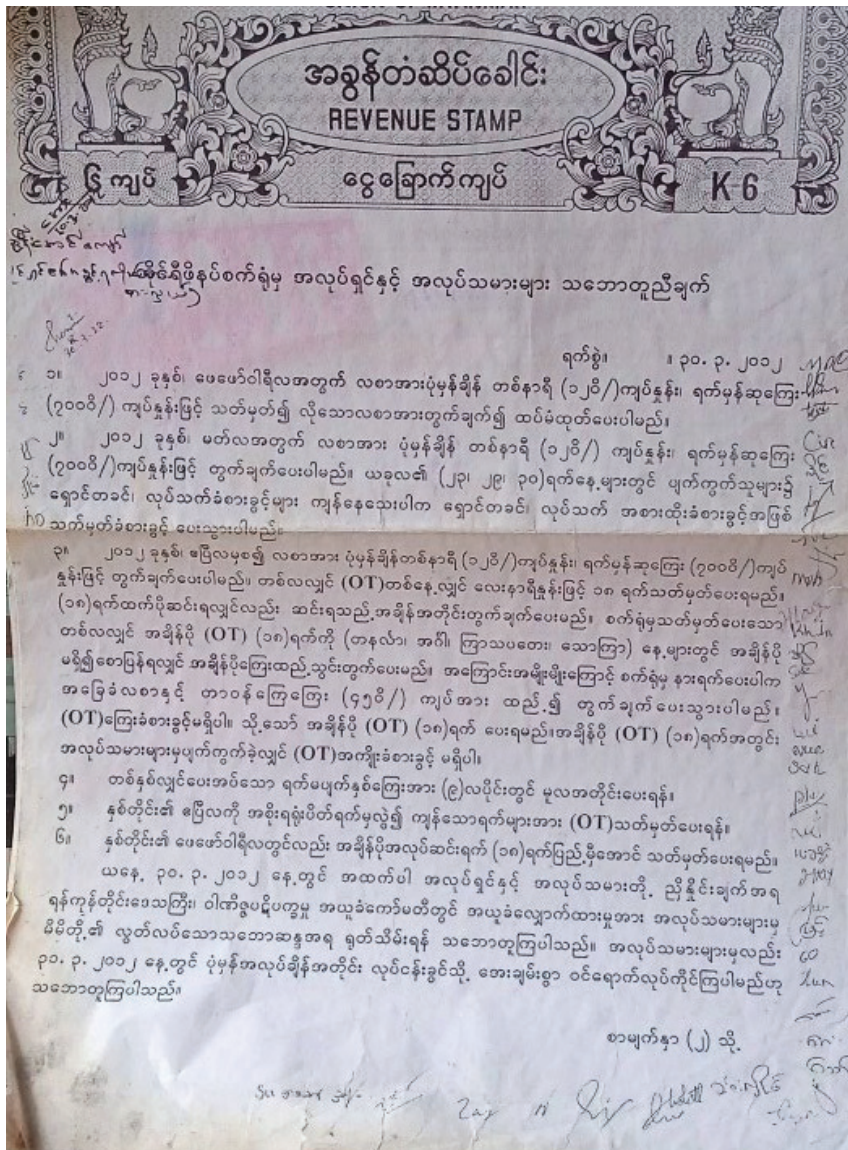 အခွန်တံဆိပ်ခေါင်း
REVENUE STAMP
၆ ကျပ်
ငွေခြောက်ကျပ်
K 6
ဖိနပ်စက်ရုံမှ အလုပ်ရှင်နှင့် အလုပ်သမားများ သဘောတူညီချက်
ရက်စွဲ။ ။ ၃၀. ၃. ၂၀၁၂
၁။ ၂၀၁၂ ခုနှစ်၊ ဖေဖော်ဝါရီလအတွက် လစာအားပုံမှန်ချိန် တစ်နာရီ (၁၂ဝိ/)ကျပ်နှုန်း၊ ရက်မှန်ဆုကြေး
(၇၀၀ဝိ/) ကျပ်နှုန်းဖြင့် သတ်မှတ်၍ လိုသောလစာအားတွက်ချက်၍ ထပ်မံထုတ်ပေးပါမည်။
၂။ ၂၀၁၂ ခုနှစ်၊ မတ်လအတွက် လစာအား ပုံမှန်ချိန် တစ်နာရီ (၁၂ဝိ/) ကျပ်နှုန်း၊ ရက်မှန်ဆုကြေး
(၇၀၀ဝိ/)ကျပ်နှုန်းဖြင့် တွက်ချက်ပေးပါမည်။ ယခုလ၏ (၂၃၊ ၂၉၊ ၃၀)ရက်နေ့များတွင် ပျက်ကွက်သူများ၌
ရှောင်တခင်၊ လုပ်သက်ခံစားခွင့်များ ကျန်နေသေးပါက ရှောင်တခင်၊ လုပ်သက် အစားထိုးခံစားခွင့်အဖြစ်
သက်မှတ်ခံစားခွင့် ပေးသွားပါမည်။
၃။ ၂၀၁၂ ခုနှစ်၊ ဧပြီလမှစ၍ လစာအား ပုံမှန်ချိန်တစ်နာရီ (၁၂ဝိ/)ကျပ်နှုန်း၊ ရက်မှန်ဆုကြေး (၇၀၀ဝိ/)ကျပ်
နှုန်းဖြင့် တွက်ချက်ပေးပါမည်။ တစ်လလျှင် (OT)တစ်နေ့လျှင် လေးနာရီနှုန်းဖြင့် ၁၈ ရက်သတ်မှတ်ပေးရမည်။
(၁၈)ရက်ထက်ပိုဆင်းရလျှင်လည်း ဆင်းရသည့်အချိန်အတိုင်းတွက်ချက်ပေးမည်။ စက်ရုံမှသတ်မှတ်ပေးသော
တစ်လလျှင် အချိန်ပို (OT) (၁၈)ရက်ကို (တနင်္လာ၊ အင်္ဂါ၊ ကြာသပတေး၊ သောကြာ) နေ့များတွင် အချိန်ပို
မရှိ၍စောပြန်ရလျှင် အချိန်ပိုကြေးထည့်သွင်းတွက်ပေးမည်။ အကြောင်းအမျိုးမျိုးကြောင့် စက်ရုံမှ နားရက်ပေးပါက
အခြေခံလစာနှင့် တာဝန်ကြေကြေး (၄၅ဝိ/) ကျပ်အား ထည့်၍ တွက်ချက်ပေးသွားပါမည်။
(OT)ကြေးခံစားခွင့်မရှိပါ။ သို့သော် အချိန်ပို (OT) (၁၈)ရက် ပေးရမည်။အချိန်ပို (OT) (၁၈)ရက်အတွင်း
အလုပ်သမားများမှပျက်ကွက်ခဲ့လျှင် (OT)အကျိုးခံစားခွင့် မရှိပါ။
၄။ တစ်နှစ်လျှင်ပေးအပ်သော ရက်မပျက်နှစ်ကြေးအား (၉)လပိုင်းတွင် မူလအတိုင်းပေးရန်။
၅။ နှစ်တိုင်း၏ ဧပြီလကို အစိုးရရုံးပိတ်ရက်မှလွဲ၍ ကျန်သောရက်များအား (OT)သတ်မှတ်ပေးရန်။
၆။ နှစ်တိုင်း၏ ဖေဖော်ဝါရီလတွင်လည်း အချိန်ပိုအလုပ်ဆင်းရက် (၁၈)ရက်ပြည့်မှီအောင် သတ်မှတ်ပေးရမည်။
ယနေ့ ၃၀. ၃. ၂၀၁၂ နေ့တွင် အထက်ပါ အလုပ်ရှင်နှင့် အလုပ်သမားတို့ ညှိနှိုင်းချက်အရ
ရန်ကုန်တိုင်းဒေသကြီး၊ ဝါဏိဇ္ဇပဋိပက္ခမှု အယူခံကော်မတီတွင် အယူခံလျှောက်ထားမှုအား အလုပ်သမားများမှ
မိမိတို့၏ လွတ်လပ်သောသဘောဆန္ဒအရ ရုတ်သိမ်းရန် သဘောတူကြပါသည်။ အလုပ်သမားများမှလည်း
၃၁. ၃. ၂၀၁၂ နေ့တွင် ပုံမှန်အလုပ်ချိန်အတိုင်း လုပ်ငန်းခွင်သို့ အေးချမ်းစွာ ဝင်ရောက်လုပ်ကိုင်ကြပါမည်ဟု
သဘောတူကြပါသည်။
စာမျက်နှာ (၂) သို့